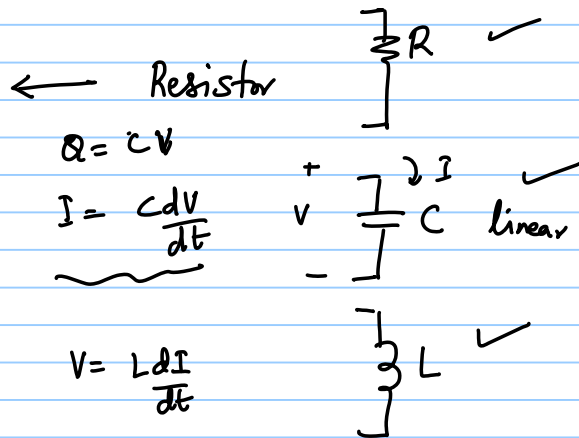 ← Resistor R ✓
Q = CV
I = C dV/dt + V − I C linear ✓
V = L dI/dt L ✓